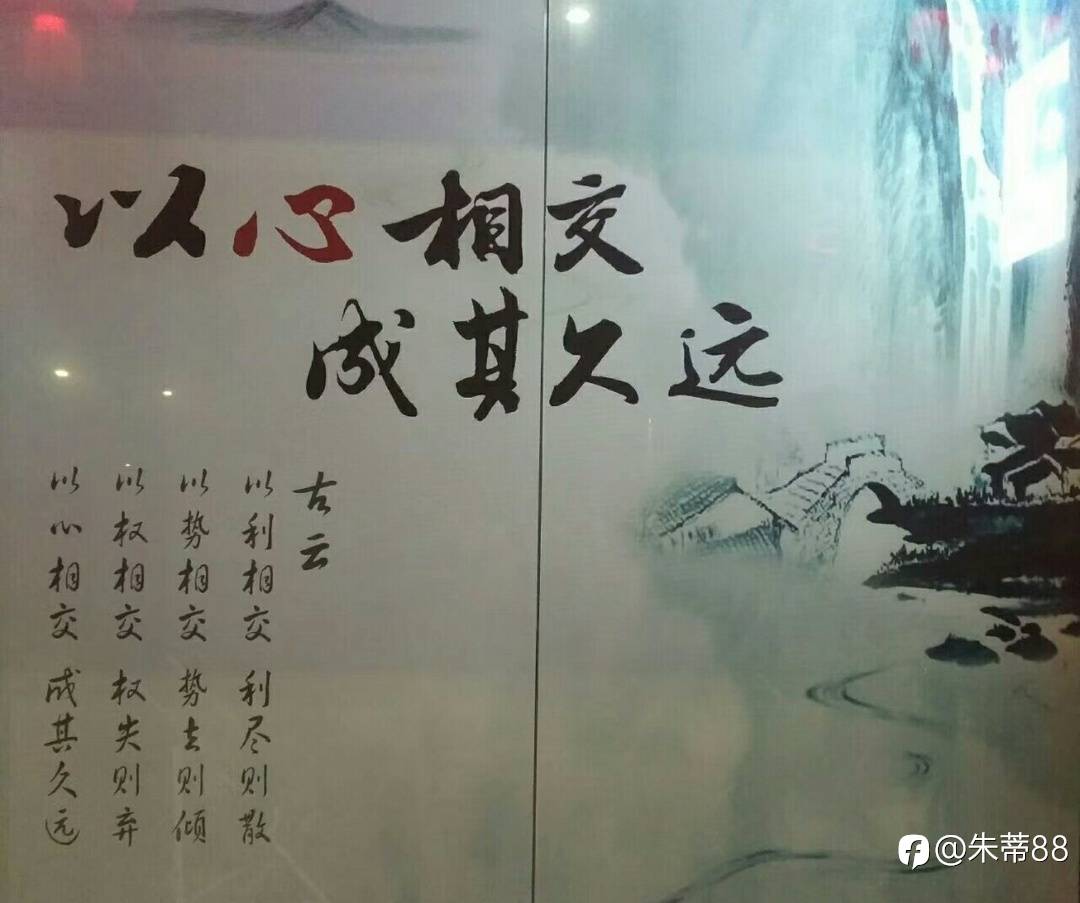 以心相交
成其久远
古云
以利相交 利尽则散
以势相交 势去则倾
以权相交 权失则弃
以心相交 成其久远
@朱蒂88